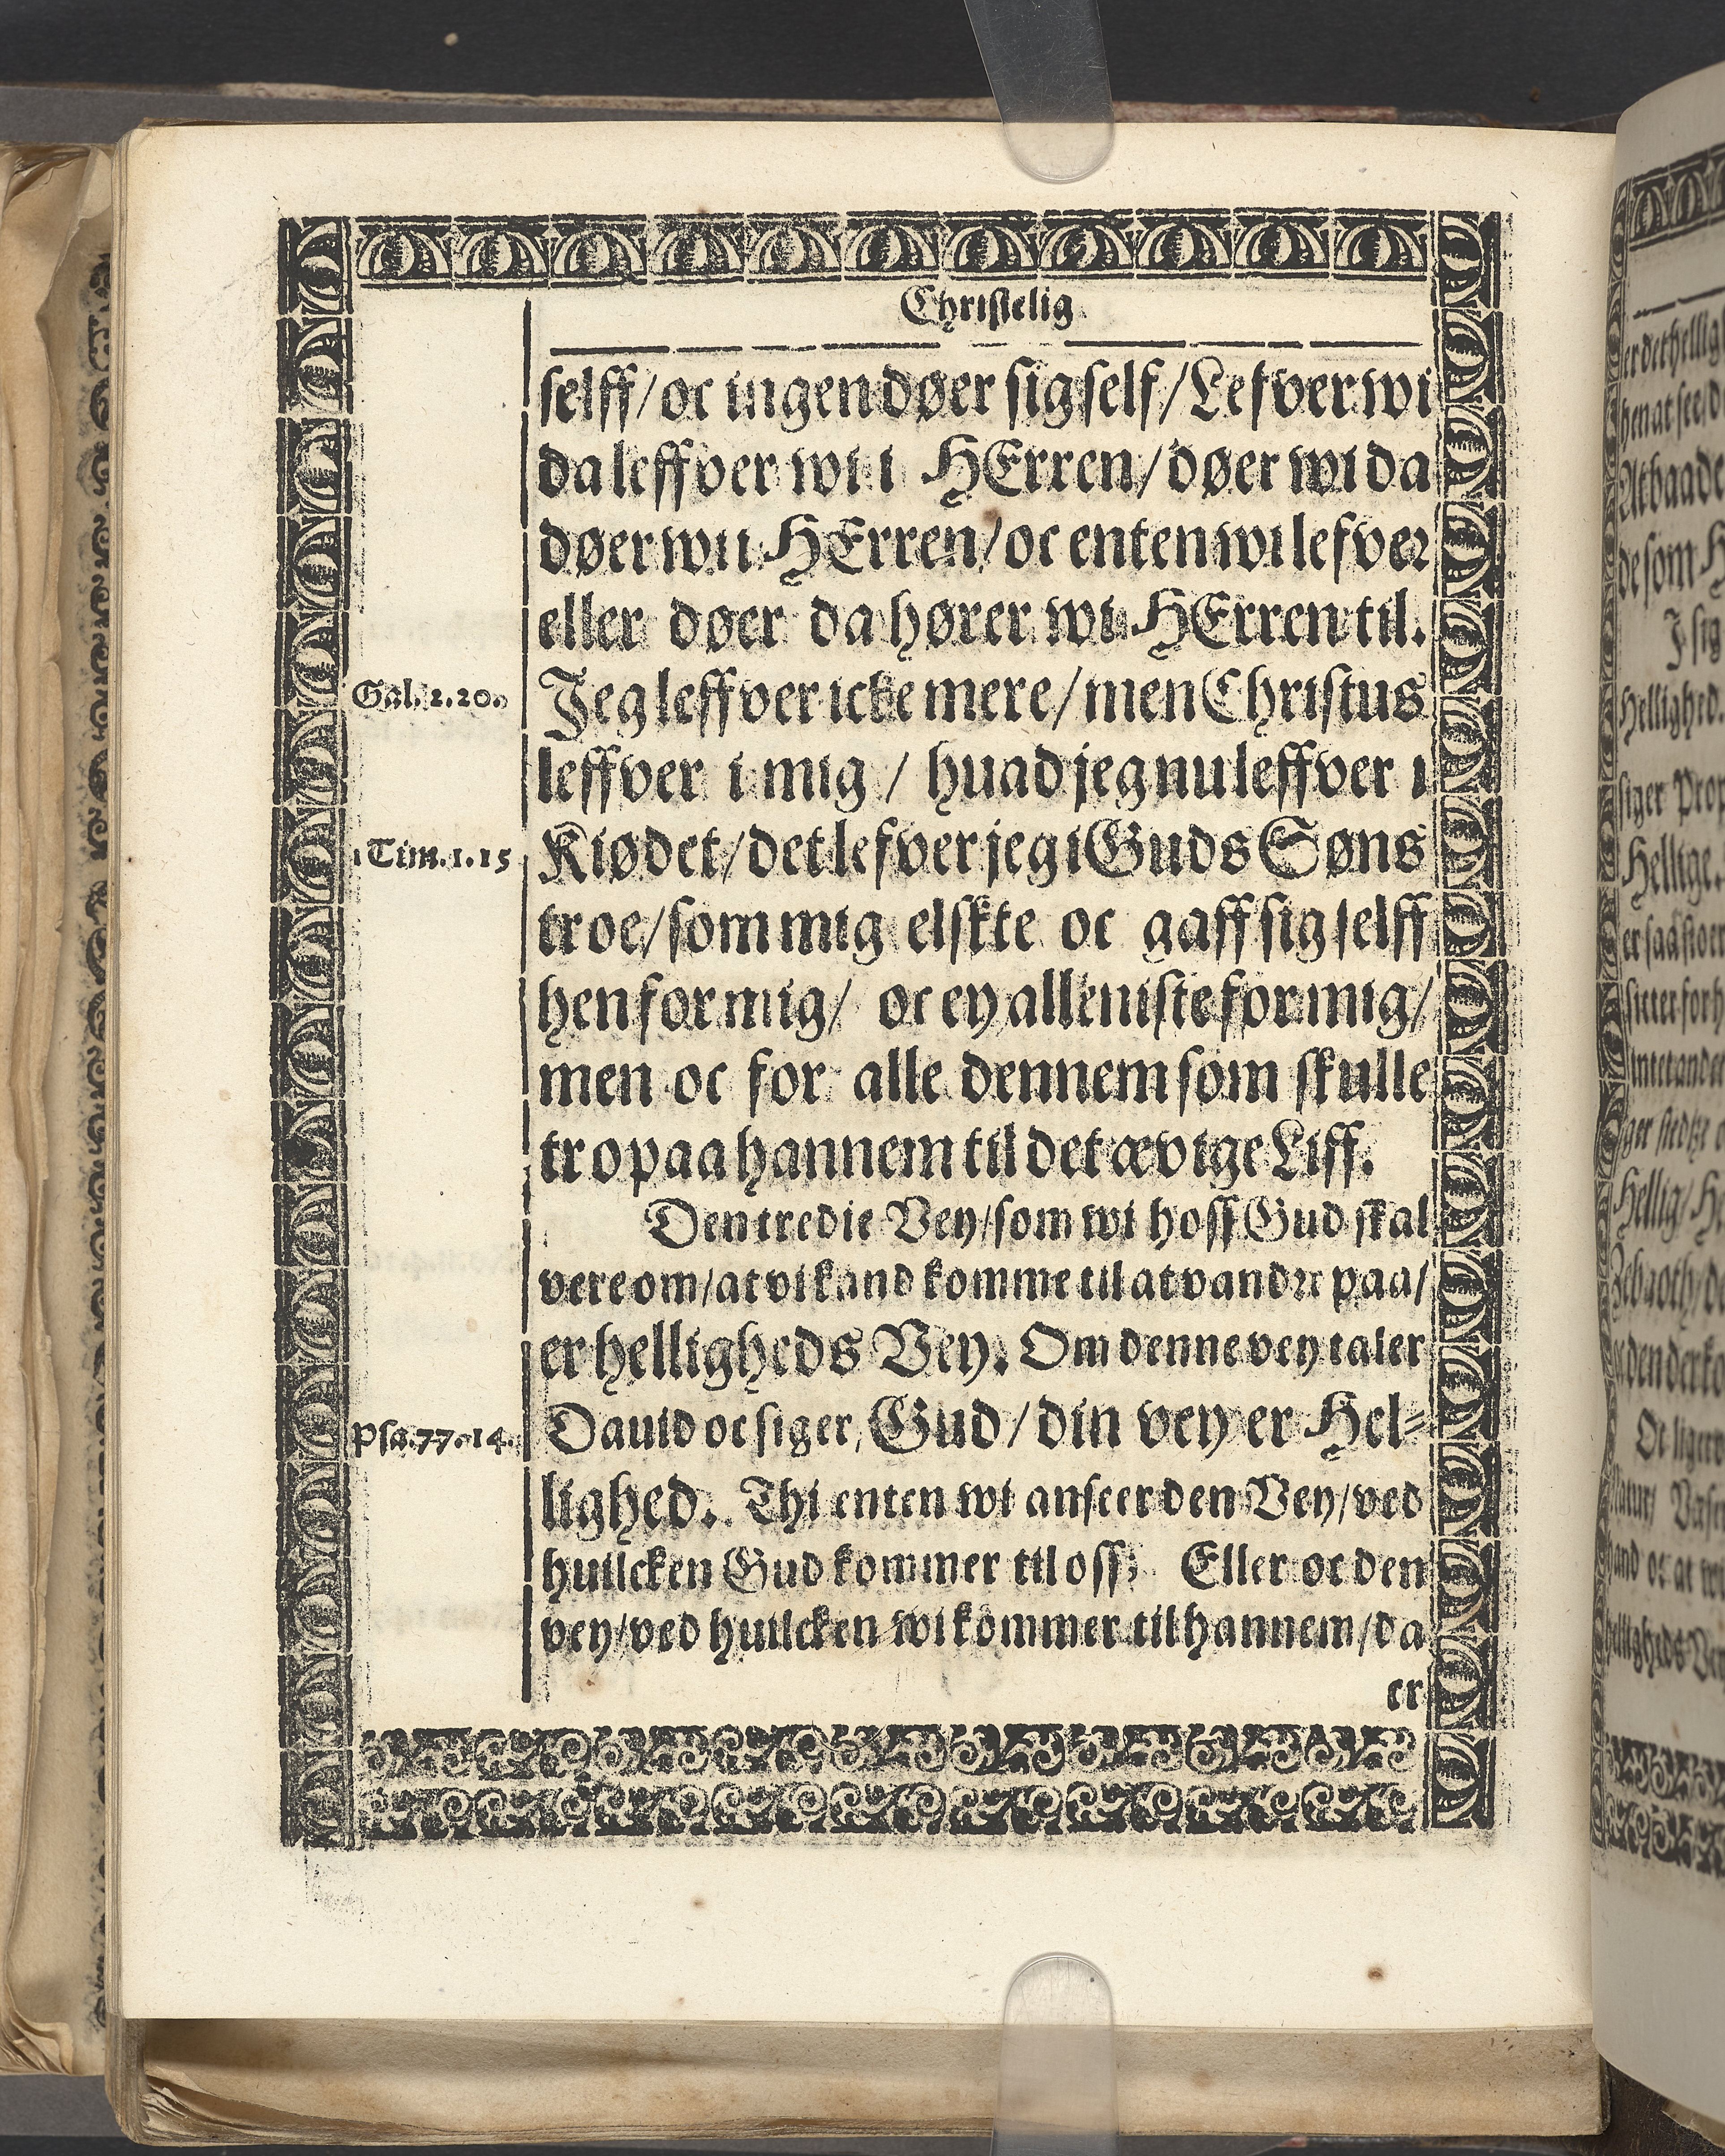 Christelig
selff/ oc ingen døer sig self/ Lefver wi
da leffver wi i HErren/ døer wi da
døer wi i HErren/ oc enten wi lefver
eller døer da hører wi HErren til.
Gal. 2. 20. Jeg leffver icke mere/ men Christus
leffver i mig / huad jeg nu leffver i
1 Tim. 1. 15 Kiødet/ det lefver jeg i Guds Søns
troe/ som mig elskte oc gaff sig selff
hen for mig/ oc ey alleniste for mig/
men oc for alle dennem som skulle
tro paa hannem til det ævige Liff.
Den tredie Vey/ som wi hoss Gud skal
vere om/ at vi kand komme til at vandre paa/
er helligheds Vey. Om denne vey taler
Psa. 77. 14. David oc siger, Gud / din vey er Hel-
lighed. Thi enten wi anseer den Vey/ ved
huilcken Gud kommer til oss; Eller oc den
vey/ ved huilcken wi kommer til hannem/ da
er